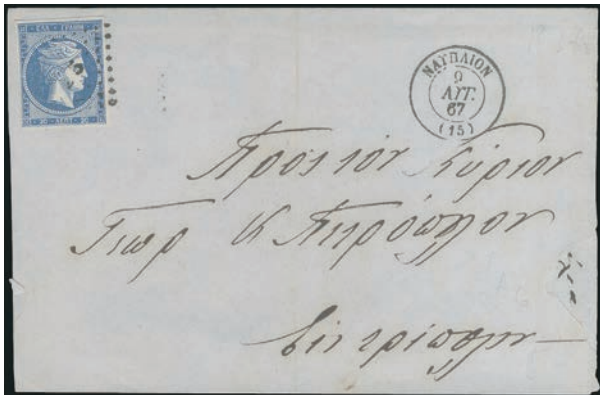 ΕΛΛ. ΓΡΑΜΜ.
20 ΛΕΠΤ. 20
ΝΑΥΠΛΙΟΝ
9
ΑΥΓ.
67
(15)
Πρὸς τὸν Κύριον
Γεωρ
Εἰς Τρίπολιν